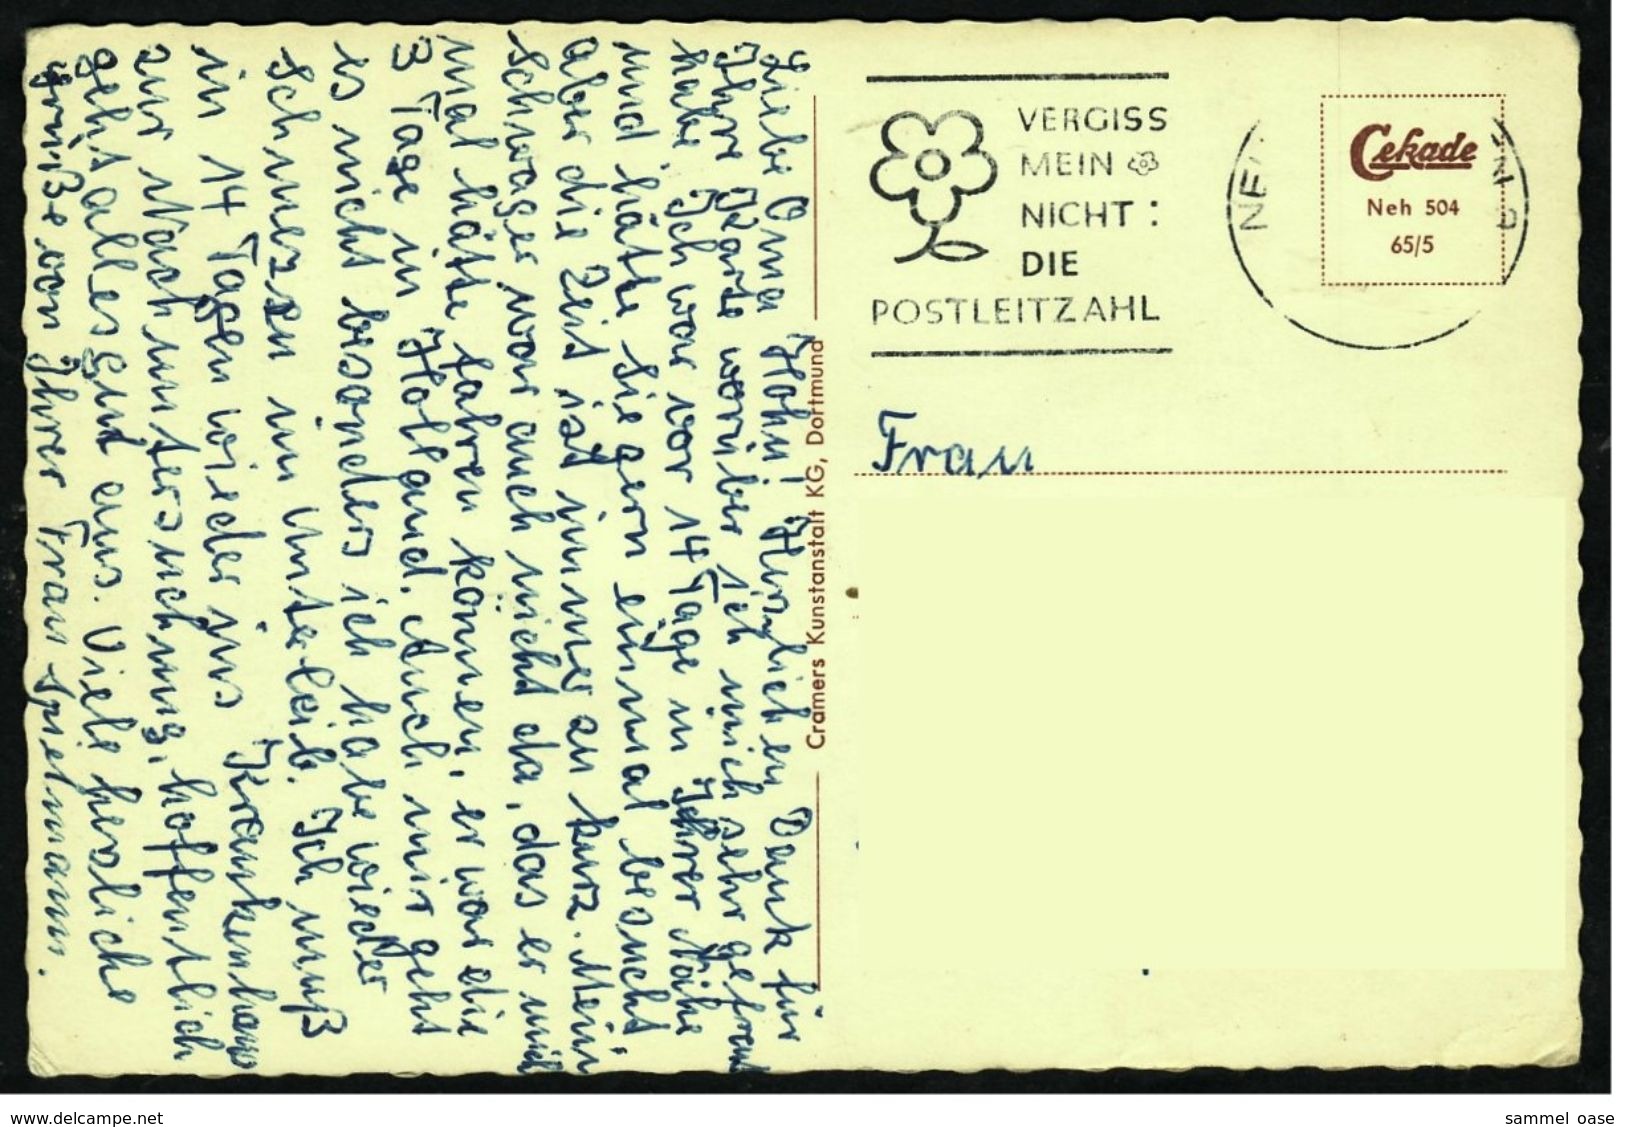 Liebe Oma Hohn! Herzlichen Dank für
Ihre Karte worüber ich mich sehr gefreut
habe. Ich war vor 14 Tage in Ihrer Nähe
und häte Sie gern einmal besucht,
aber die Zeit ist immer zu kurz. Mein
Schwager war auch nicht da, das er mich
mal häte fahren können, er war die
3 Tage in Holland. Auch mir geht
es nicht besonders ich habe wieder
Schmerzen im Unterleib. Ich muß
in 14 Tagen wieder ins Krankenhaus
zur Nachuntersuchung, hoffentlich
geht alles gut aus. Viele herzliche
Grüße von Ihrer Frau Spielmann.
Cramers Kunstanstalt KG, Dortmund
VERGISS
MEIN
NICHT:
DIE
POSTLEITZAHL
NE
Cekade
Neh 504
65/5
Frau
www.delcampe.net
sammel oase